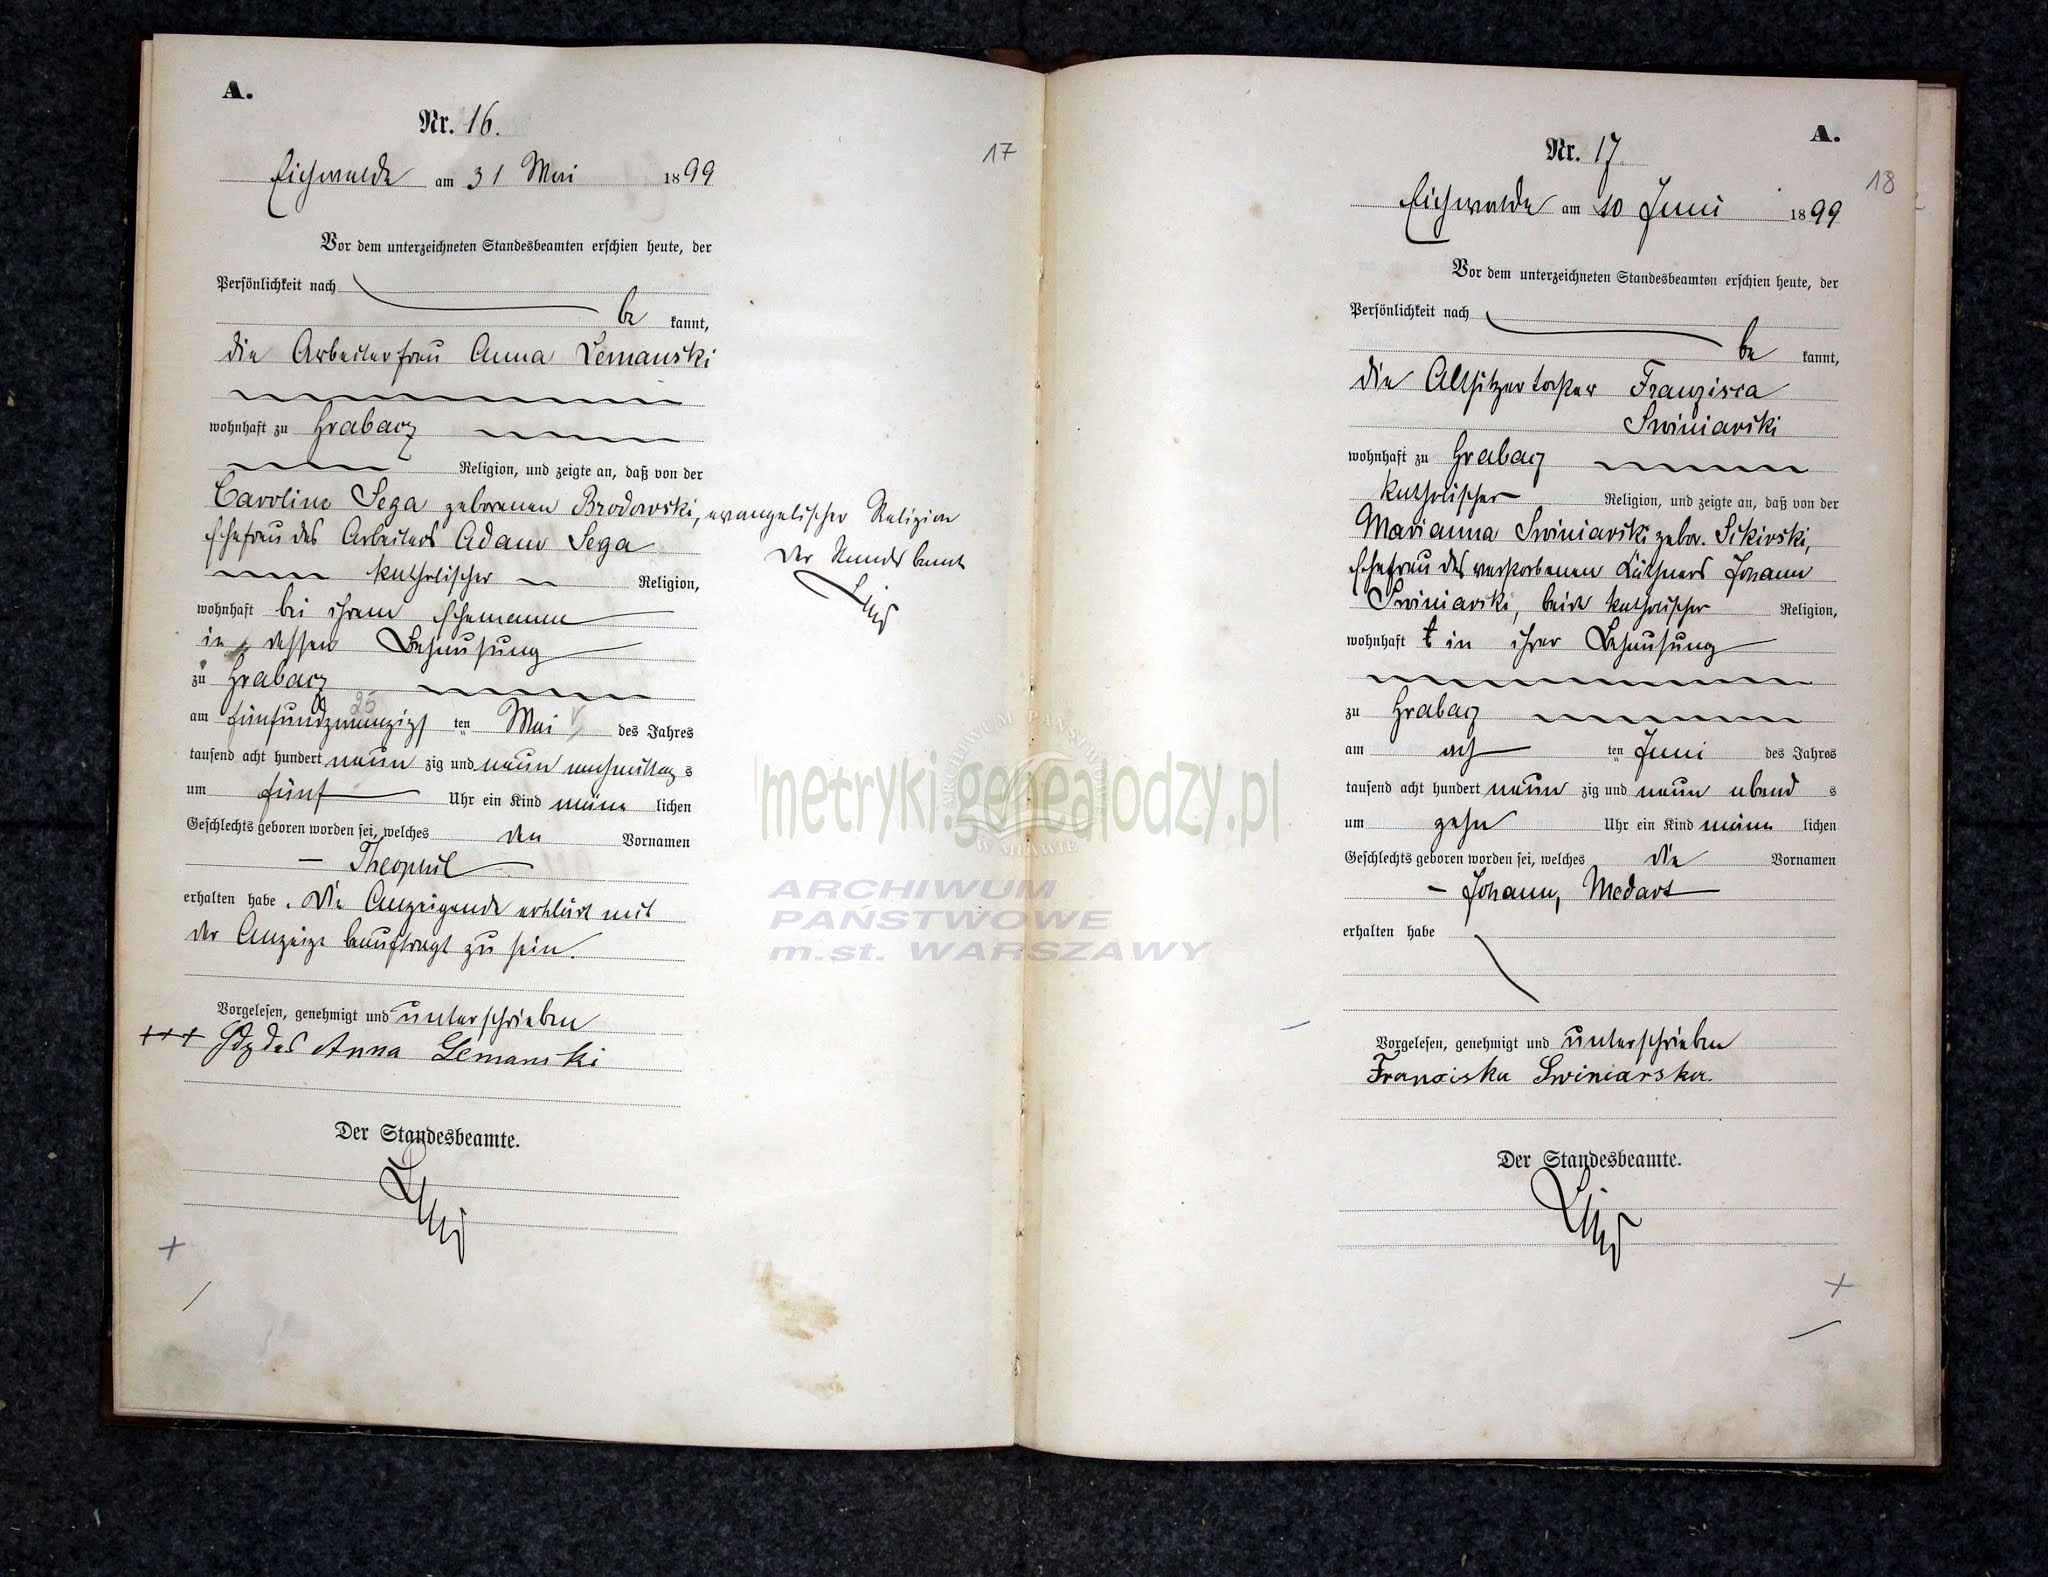 A.
Nr. 16.
17
Eichwalde am 31 Mai 1899
Vor dem unterzeichneten Standesbeamten erschien heute, der
Persönlichkeit nach
be kannt,
die Arbeiterfrau Anna Lemanski
wohnhaft zu Grabacz
Religion, und zeigte an, daß von der
Caroline Sega geborenen Brodowski, evangelischer Religion
Ehefrau des Arbeiters Adam Sega
Der Standesbeamte
katholischer Religion,
wohnhaft bei ihrem Ehemanne
in dessen Behausung
zu Grabacz
25
am fünfundzwanzigs ten Mai des Jahres
tausend acht hundert neun zig und neun nachmittags
um fünf Uhr ein Kind männ lichen
Geschlechts geboren worden sei, welches den Vornamen
– Theophil –
erhalten habe. Die Anzeigende erklärt mit
der Anzeige beauftragt zu sein.
Vorgelesen, genehmigt und unterschrieben
+++ Hdz des Anna Lemanski
Der Standesbeamte.
A.
Nr. 17
18
Eichwalde am 10 Juni 1899
Vor dem unterzeichneten Standesbeamten erschien heute, der
Persönlichkeit nach
be kannt,
die Altsitzertochter Franzisca
Swiniarski
wohnhaft zu Grabacz
katholischer Religion, und zeigte an, daß von der
Marianna Swiniarski gebor. Sikorski,
Ehefrau des verstorbenen Käthners Johann
Swiniarski, beide katholischer Religion,
wohnhaft in ihrer Behausung
zu Grabacz
am acht ten Juni des Jahres
tausend acht hundert neun zig und neun abend s
um zehn Uhr ein Kind männ lichen
Geschlechts geboren worden sei, welches die Vornamen
– Johann, Medart
erhalten habe
Vorgelesen, genehmigt und unterschrieben
Franciska Swiniarska.
Der Standesbeamte.
metryki.genealodzy.pl
ARCHIWUM PAŃSTWOWE
W MŁAWIE
ARCHIWUM
PAŃSTWOWE
m.st. WARSZAWY